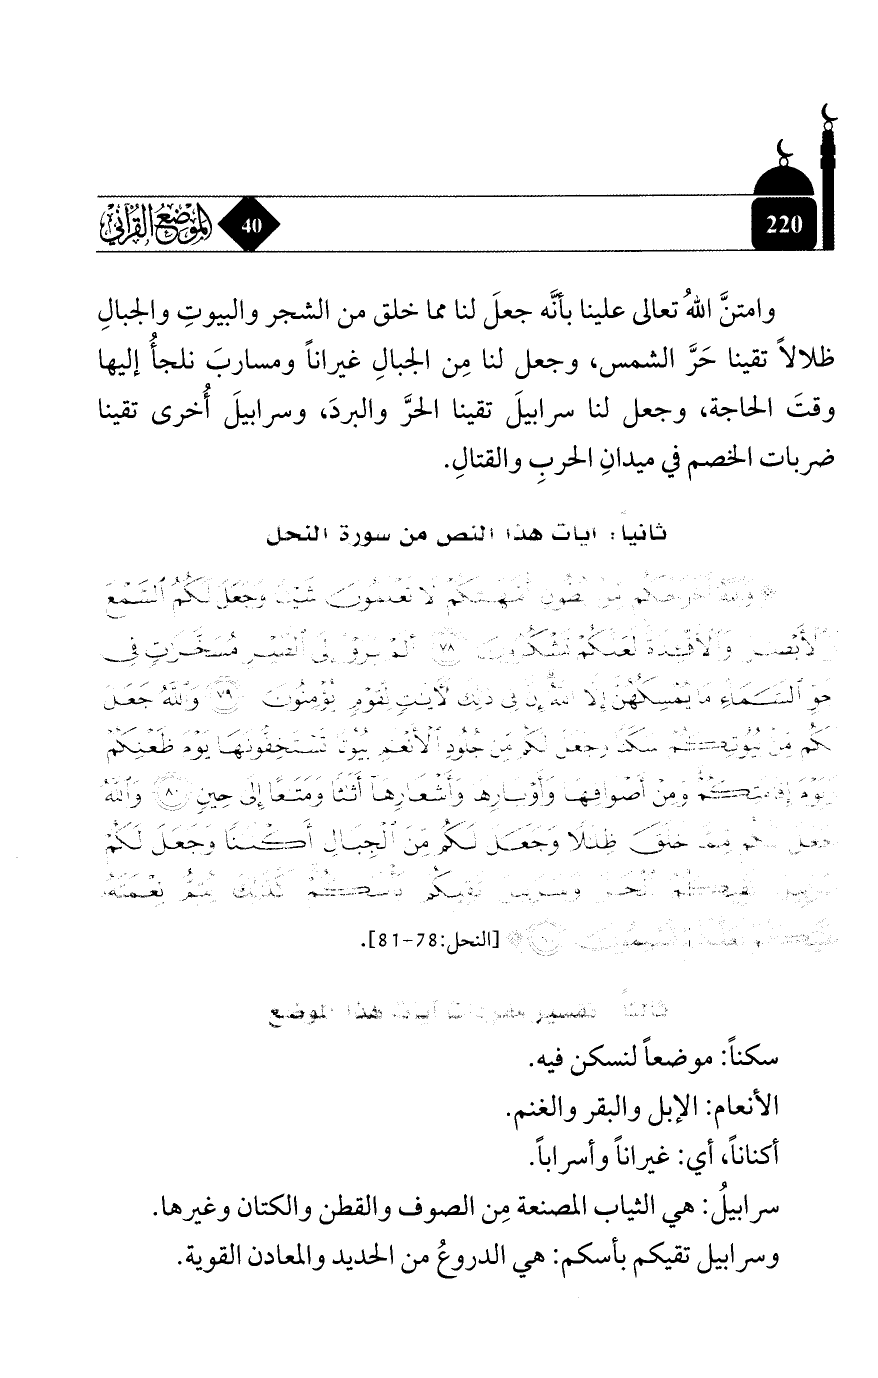 220
40 الموضع القرآني
وامتنَّ اللهُ تعالى علينا بأنَّه جعلَ لنا مما خلق من الشجر والبيوتِ والجبالِ
ظلالاً تقينا حَرَّ الشمس، وجعل لنا مِن الجبالِ غيراناً ومساربَ نلجأُ إليها
وقتَ الحاجة، وجعل لنا سرابيلَ تقينا الحرَّ والبردَ، وسرابيلَ أُخرى تقينا
ضربات الخصم في ميدانِ الحربِ والقتالِ.
ثانياً: آيات هذا النص من سورة النحل
أَخْرَجَكُم مِّنۢ بُطُونِ أُمَّهَٰتِكُمْ لَا تَعْلَمُونَ شَيْـًٔا وَجَعَلَ لَكُمُ ٱلسَّمْعَ
وَٱلْأَبْصَٰرَ وَٱلْأَفْـِٔدَةَ لَعَلَّكُمْ تَشْكُرُونَ ٧٨ أَلَمْ يَرَوْا۟ إِلَى ٱلطَّيْرِ مُسَخَّرَٰتٍ فِى
جَوِّ ٱلسَّمَآءِ مَا يُمْسِكُهُنَّ إِلَّا ٱللَّهُ إِنَّ فِى ذَٰلِكَ لَءَايَٰتٍ لِّقَوْمٍ يُؤْمِنُونَ ٧٩ وَٱللَّهُ جَعَلَ
لَكُم مِّنۢ بُيُوتِكُمْ سَكَنًا وَجَعَلَ لَكُم مِّن جُلُودِ ٱلْأَنْعَٰمِ بُيُوتًا تَسْتَخِفُّونَهَا يَوْمَ ظَعْنِكُمْ
وَيَوْمَ إِقَامَتِكُمْ وَمِنْ أَصْوَافِهَا وَأَوْبَارِهَا وَأَشْعَارِهَآ أَثَٰثًا وَمَتَٰعًا إِلَىٰ حِينٍ ٨٠ وَٱللَّهُ
جَعَلَ لَكُم مِّمَّا خَلَقَ ظِلَٰلًا وَجَعَلَ لَكُم مِّنَ ٱلْجِبَالِ أَكْنَٰنًا وَجَعَلَ لَكُمْ
تَقِيكُمُ ٱلْحَرَّ وَسَرَٰبِيلَ تَقِيكُم بَأْسَكُمْ كَذَٰلِكَ يُتِمُّ نِعْمَتَهُۥ
[النحل:78-81].
ثالثاً: تفسير مفردات آيات هذا الموضع
سكناً: موضعاً لنسكن فيه.
الأنعام: الإبل والبقر والغنم.
أكناناً، أي: غيراناً وأسراباً.
سرابيلُ: هي الثياب المصنعة مِن الصوف والقطن والكتان وغيرها.
وسرابيل تقيكم بأسكم: هي الدروعُ من الحديد والمعادن القوية.